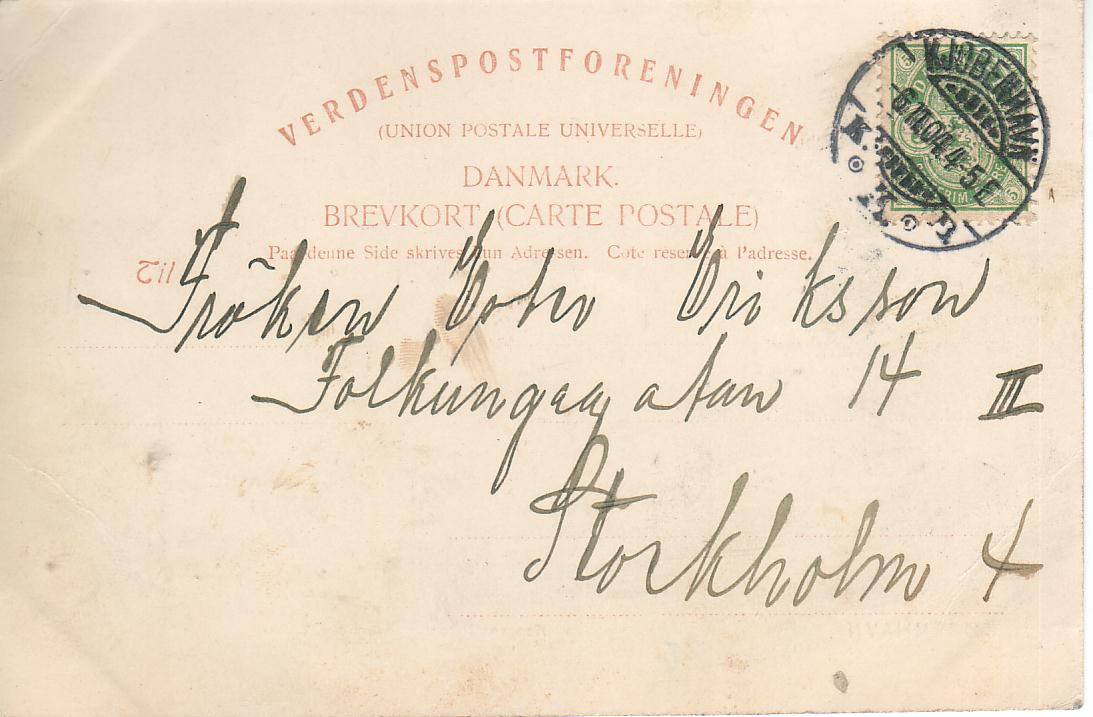 VERDENSPOSTFORENINGEN
(UNION POSTALE UNIVERSELLE)
DANMARK.
BREVKORT (CARTE POSTALE)
Paa denne Side skrives kun Adressen. Cote reservé à l'adresse.
Til
Fröken Eriksson
Folkungagatan 14 III
Stockholm 4
KJØBENHAVN
K.
4-5 E